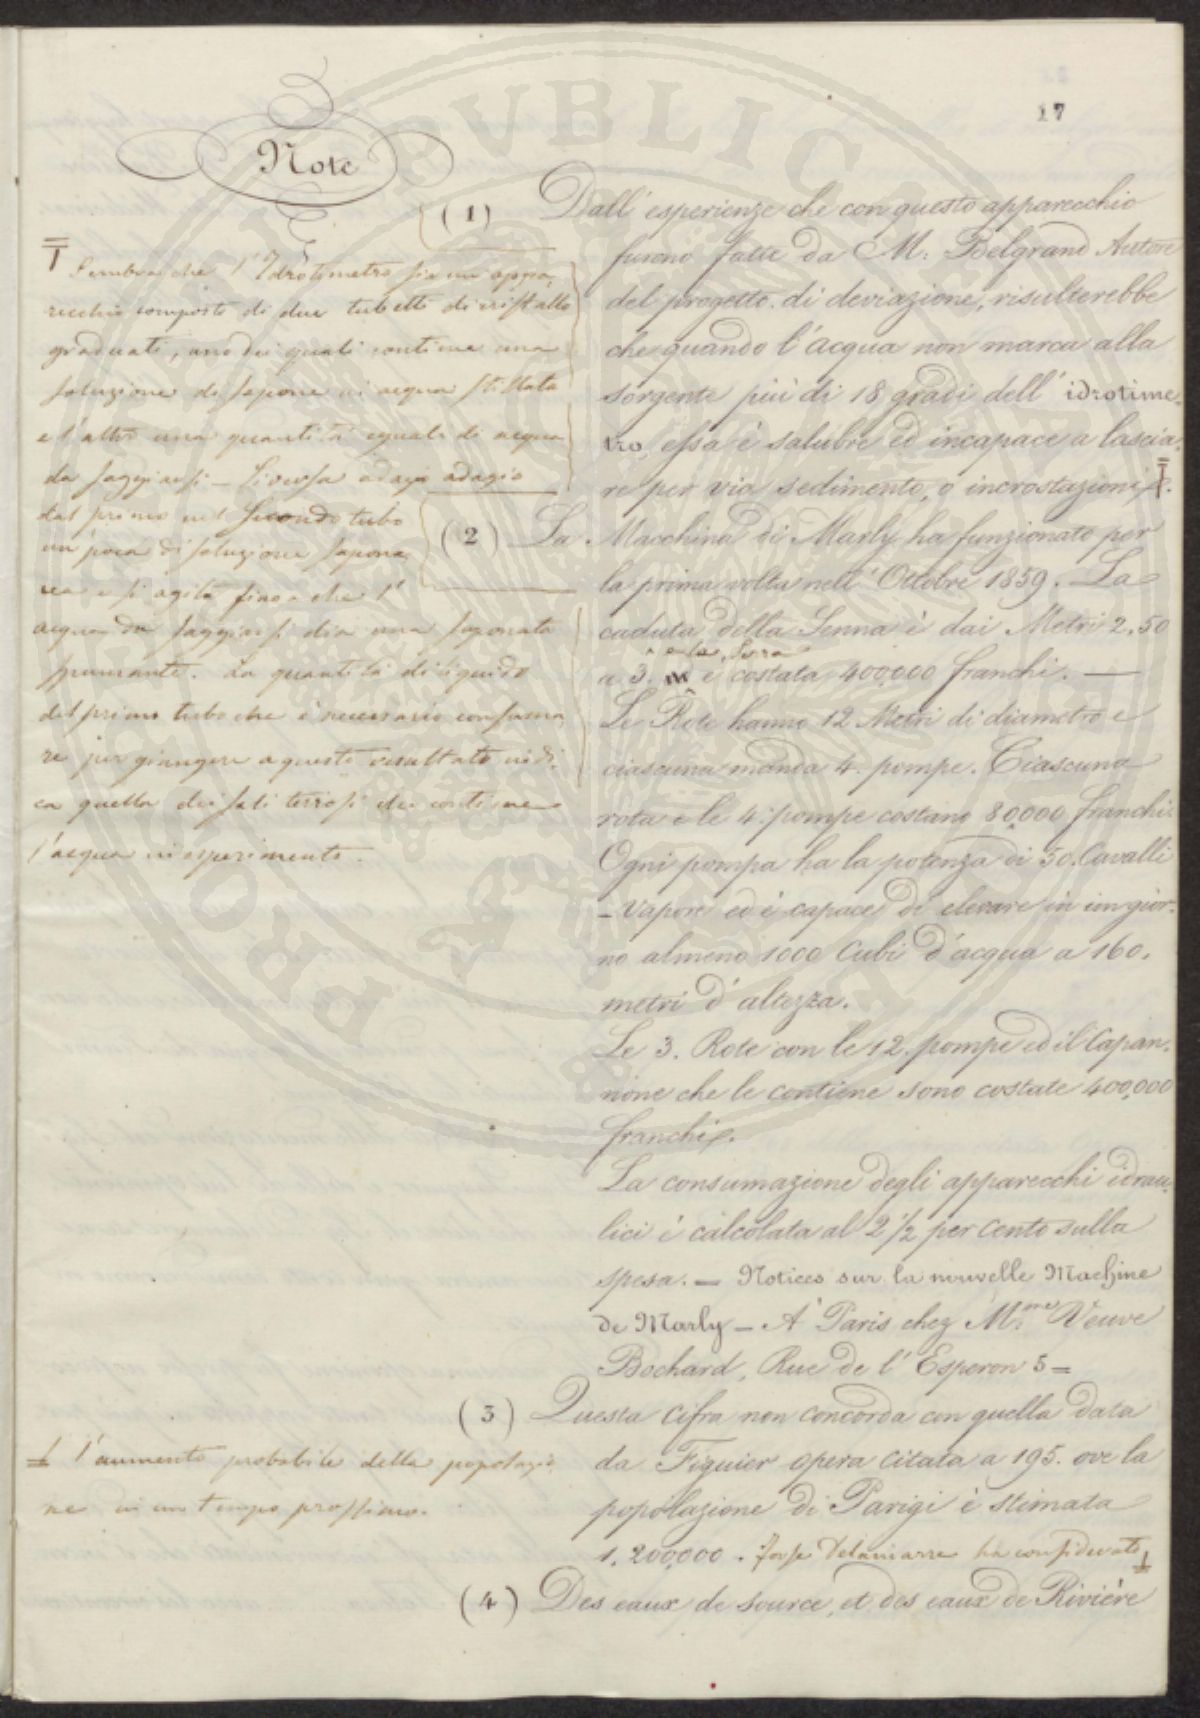 17
Note
(1) Dall' esperienze che con questo apparecchio
furono fatte da M: Belgrand Autore
del progetto di deviazione, risulterebbe
che quando l'acqua non marca alla
sorgente più di 18 gradi dell' idrotime-
tro, essa è salubre ed incapace a lascia-
re per via sedimento, o incrostazioni.
(2) La Macchina di Marly ha funzionato per
la prima volta nell' Ottobre 1859. La
caduta della Senna è dai Metri 2,50
a 3. e la Serra è costata 400,000 franchi. —
Le Rote hanno 12 Metri di diametro e
ciascuna manda 4. pompe. Ciascuna
rota e le 4. pompe costano 80,000 franchi.
Ogni pompa ha la potenza di 50. Cavalli
- Vapore ed è capace di elevare in un gior-
no almeno 1000 Cubi d'acqua a 160.
metri d'altezza.
Le 3. Rote con le 12. pompe ed il Capan-
none che le contiene sono costate 400,000
franchi.
La consumazione degli apparecchi idrau-
lici è calcolata al 2 1/2 per cento sulla
spesa. — Notices sur la nouvelle Machine
de Marly — A Paris chez M.me Veuve
Bochard, Rue de l' Esperon 5 =
(3) Questa cifra non concorda con quella data
da Figuier opera citata a 195. ove la
popolazione di Parigi è stimata
1,200,000. Forse Delamarre ha considerato
(4) Des eaux de source, et des eaux de Rivière
Sembra che l'Idrotimetro sia un appa-
recchio composto di due tubetti di cristallo
graduati, uno dei quali contiene una
soluzione di sapone in acqua stillata
e l'altro una quantità eguale di acqua
da saggiarsi — Si versa adagio adagio
dal primo nel secondo tubo
un poca di soluzione sapona-
cea e si agita fino a che l'
acqua da saggiarsi dia una saponata
spumante. La quantità di liquido
del primo tubo che è necessario consuma-
re per giungere a questo resultato indi-
ca quella dei sali terrosi che contiene
l'acqua in esperimento.
l'aumento probabile della popolazio-
ne in un tempo prossimo.
PVBLICAE